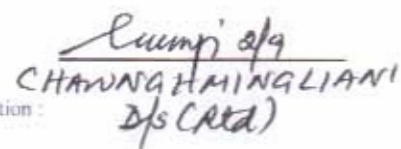 2/9
CHAWNGHMINGLIANI
tion :
D/s (Rtd)